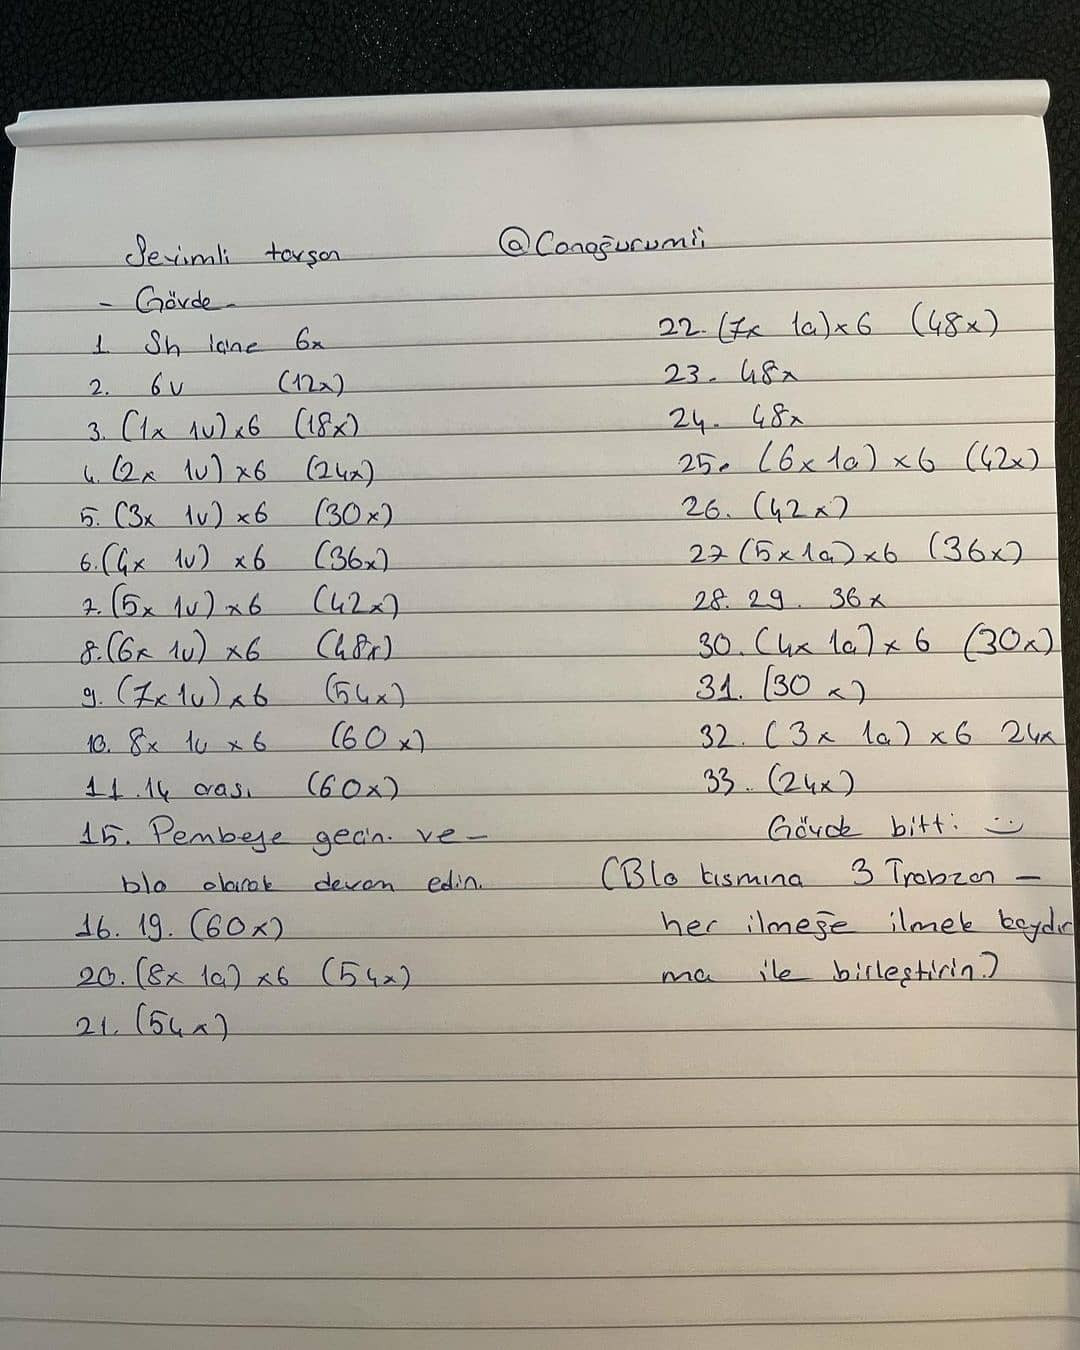 Sevimli tavşan
@Cangurumii
- Gövde -
1. Sh içine 6x
2. 6v (12x)
3. (1x 1v)x6 (18x)
4. (2x 1v)x6 (24x)
5. (3x 1v)x6 (30x)
6. (4x 1v) x6 (36x)
7. (5x 1v)x6 (42x)
8. (6x 1v) x6 (48x)
9. (7x 1v)x6 (54x)
10. 8x 1v x6 (60x)
11.14 arası (60x)
15. Pembeye geçin. ve -
blo olarak devam edin.
16. 19. (60x)
20. (8x 1a) x6 (54x)
21. (54x)
22. (7x 1a)x6 (48x)
23. 48x
24. 48x
25. (6x 1a) x6 (42x)
26. (42x)
27 (5x 1a)x6 (36x)
28. 29. 36x
30. (4x 1a)x 6 (30x)
31. (30x)
32. (3x 1a) x6 24x
33.. (24x)
Gövde bitti :)
(Blo kısmına 3 Trabzan -
her ilmeğe ilmek kaydır
ma ile birleştirin.)